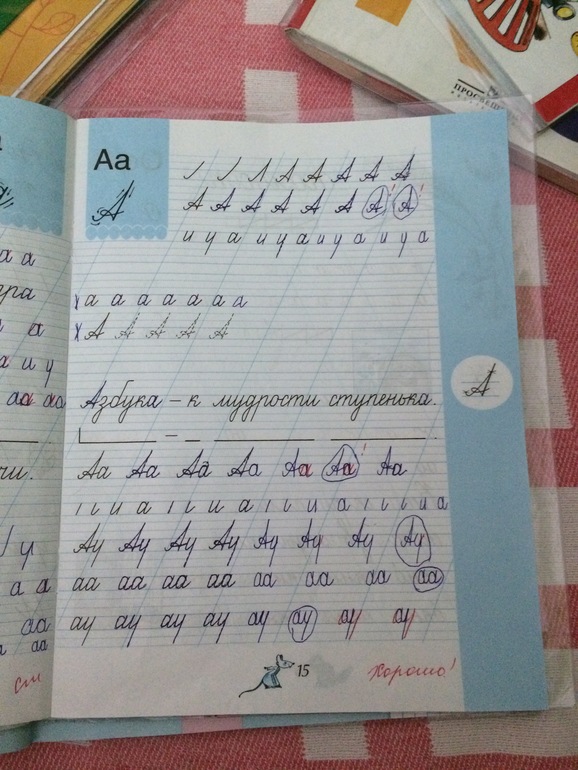 ПРОСВЕЩ
Аа
А
Л А А А А А
А А А А А А А А
и у а и у а и у а и у а
а а а а а а а
А А А А А
А
Азбука – к мудрости ступенька.
Аа Аа Аа Аа Аа Аа Аа
и а и а и а и а
Ау Ау Ау Ау Ау Ау Ау Ау
аа аа аа аа аа аа аа аа
ау ау ау ау ау ау ау ау
15
Хорошо!